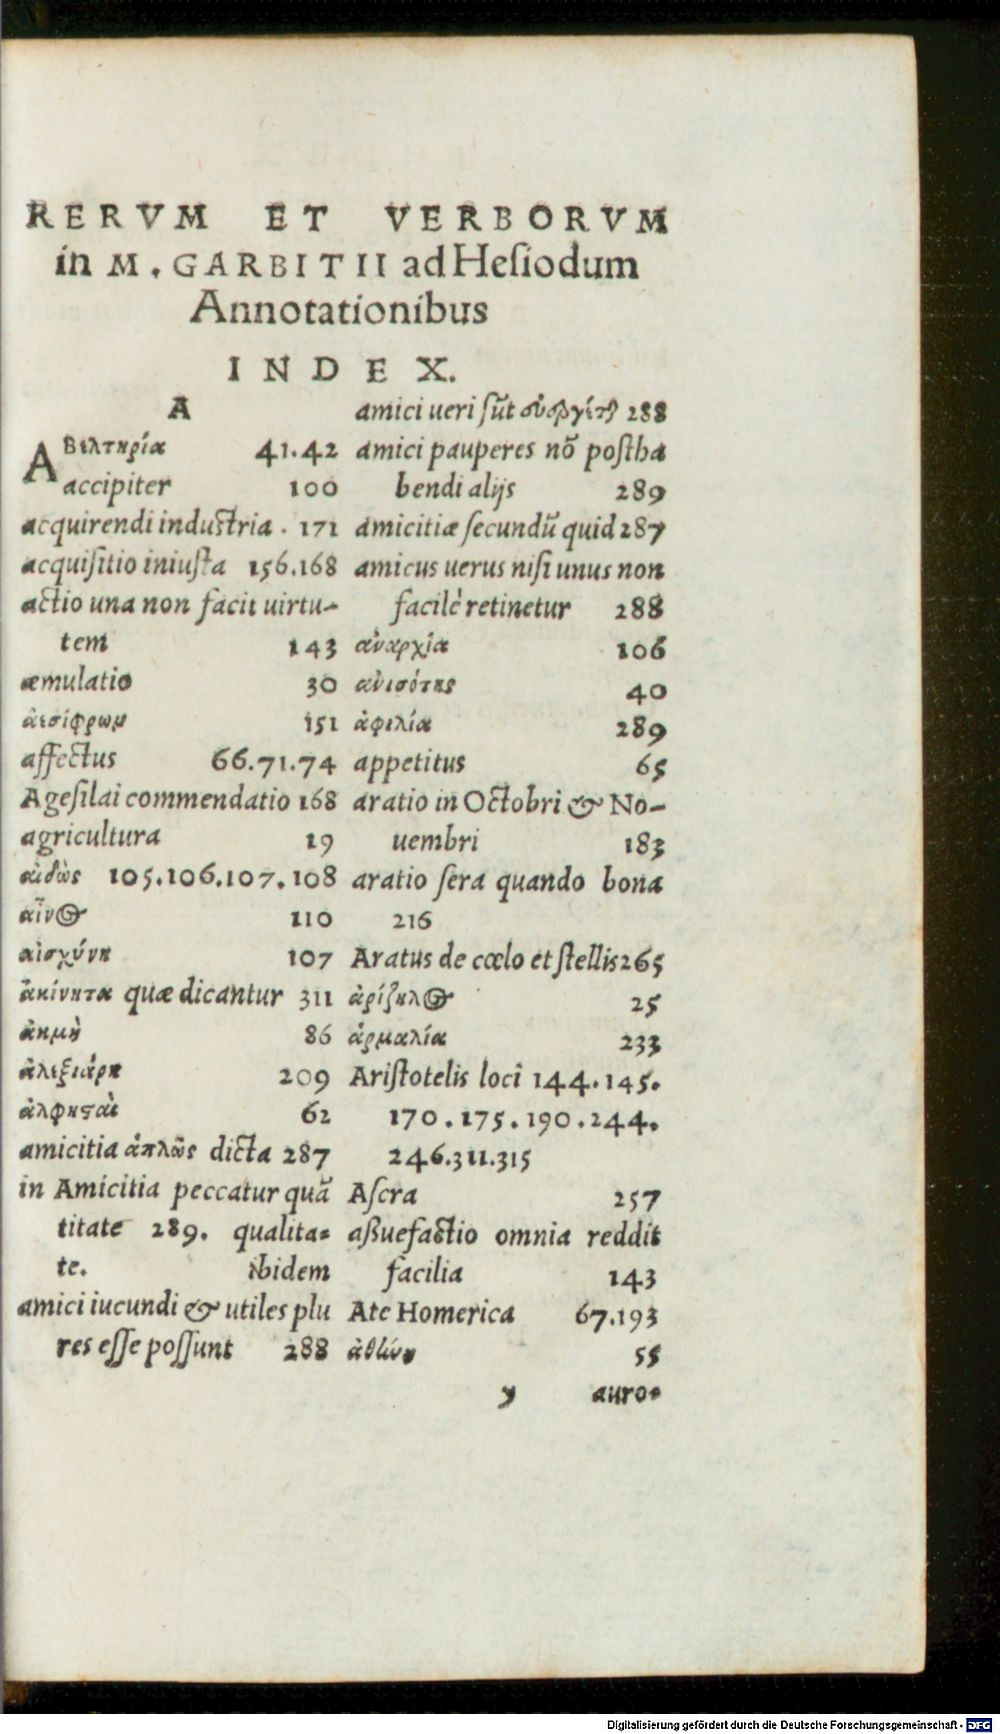 RERVM ET VERBORVM
in M. GARBITII ad Hesiodum
Annotationibus
INDEX.
A
Aβελτηρία 41.42
accipiter 100
acquirendi industria . 171
acquisitio iniusta 156.168
actio una non facit uirtu-
tem 143
æmulatio 30
ἀεσίφρων 151
affectus 66.71.74
Agesilai commendatio 168
agricultura 19
αἰδὼς 105.106.107.108
αἶνος 110
αἰσχύνη 107
ἀκίνητα quæ dicantur 311
ἀκμὴ 86
ἀλεξιάρη 209
ἀλφησαὶ 62
amicitia ἁπλῶς dicta 287
in Amicitia peccatur quã
titate 289. qualita-
te. ibidem
amici iucundi & utiles plu
res esse possunt 288
amici ueri sũt 288
amici pauperes nõ postha
bendi alijs 289
amicitiæ secundũ quid 287
amicus uerus nisi unus non
facilè retinetur 288
ἀναρχία 106
ἀνισότης 40
ἀφιλία 289
appetitus 65
aratio in Octobri & No-
uembri 183
aratio sera quando bona
216
Aratus de cœlo et stellis 265
ἀρίζηλος 25
ἁρμαλία 233
Aristotelis loci 144.145.
170.175.190.244.
246.311.315
Ascra 257
aßuefactio omnia reddit
facilia 143
Ate Homerica 67.193
55
y auro-
Digitalisierung gefördert durch die Deutsche Forschungsgemeinschaft - DFG